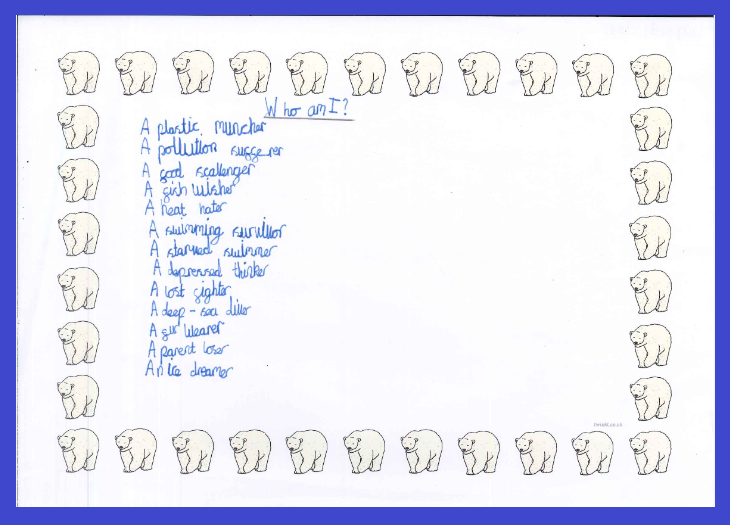 Who am I?
A plastic muncher
A pollution sufferer
A food scallenger
A fish wisher
A heat hater
A swimming survivor
A starved swimmer
A depressed thinker
A lost fighter
A deep-sea diver
A fur wearer
A parent loser
An ice dreamer